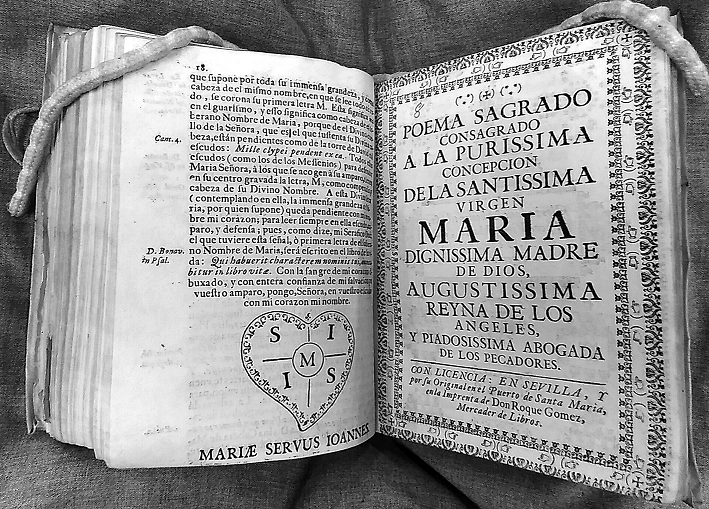 18.
que supone por toda su immensa grandeza, y como
cabeza de el mismo nombre, en que se lee todo
do, se corona su primera letra M. Esta significa
en el guarismo, y esso significa como cabeza de
berano Nombre de Maria, porque de el Divino
llo de la Señora, que es el que sustenta su Divina
Cant. 4.
beza, están pendientes como de la torre de David
escudos: Mille clypei pendent ex ea. Todos
escudos (como los de los Messenios) para
Maria Señora, à los que se acogen à su amparo
en su centro gravada la letra, M, como
cabeza de su Divino Nombre. A esta Divina
(contemplando en ella, la immensa grandeza de
ria, por quien supone) queda pendiente con
bre mi corazon; para leer siempre en este escudo
paro, y defensa; pues, como dize, mi Serafico
el que tuviere esta señal, ò primera letra de el
D. Bonav.
in Psal.
no Nombre de Maria, será escrito en el libro de
da: Qui habuerit characterem nominis
bitur in libro vitæ. Con la sangre de mi corazon
buxado, y con entera confianza de mi salvacion
vuestro amparo, pongo, Señora, en vuestro
con mi corazon mi nombre.
S I
M
I S
MARIÆ SERVUS IOANNES
8
POEMA SAGRADO
CONSAGRADO
A LA PURISSIMA
CONCEPCION
DE LA SANTISSIMA
VIRGEN
MARIA
DIGNISSIMA MADRE
DE DIOS,
AUGUSTISSIMA
REYNA DE LOS
ANGELES,
Y PIADOSISSIMA ABOGADA
DE LOS PECADORES.
CON LICENCIA: EN SEVILLA, Y
por su Original en el Puerto de Santa Maria,
en la Imprenta de Don Roque Gomez,
Mercader de Libros.